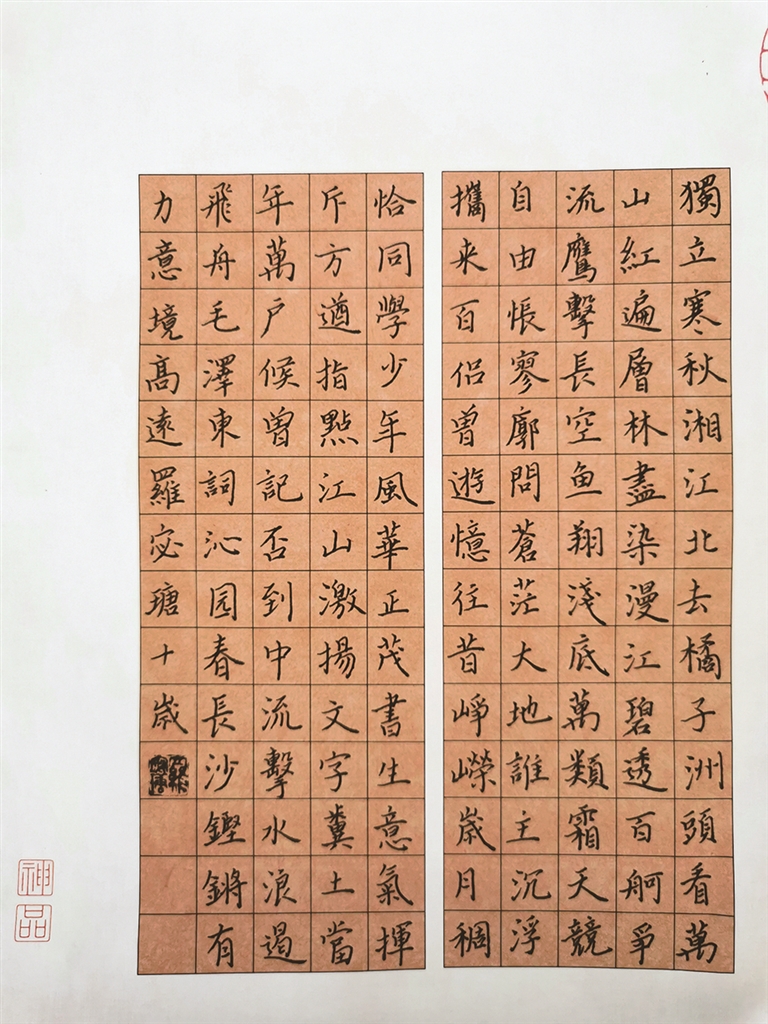 獨立寒秋湘江北去橘子洲頭看萬
山紅遍層林盡染漫江碧透百舸爭
流鷹擊長空魚翔淺底萬類霜天競
自由悵寥廓問蒼茫大地誰主沉浮
攜来百侣曾遊憶往昔崢嶸歲月稠
恰同學少年風華正茂書生意氣揮
斥方遒指點江山激揚文字糞土當
年萬户候曾記否到中流擊水浪遏
飛舟毛澤東詞沁园春長沙鏗鏘有
力意境高遠羅宓瑭十歲
神品